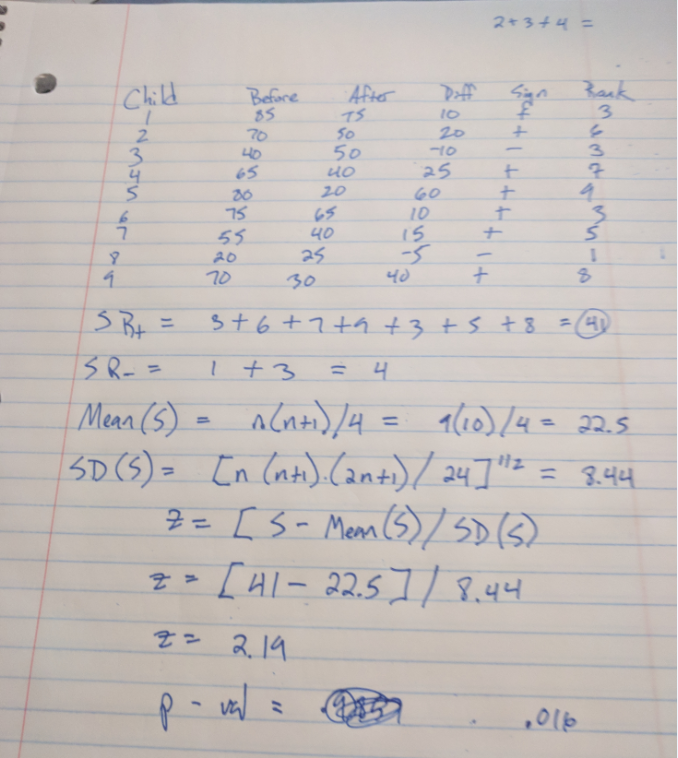 2+3+4 =
Child Before After Diff Sign Rank
1 85 75 10 + 3
2 70 50 20 + 6
3 40 50 -10 - 3
4 65 40 25 + 7
5 80 20 60 + 9
6 75 65 10 + 3
7 55 40 15 + 5
8 20 25 -5 - 1
9 70 30 40 + 8
SR+ = 3+6+7+9+3+5+8 = 41
SR- = 1 + 3 = 4
Mean(S) = n(n+1)/4 = 9(10)/4 = 22.5
SD(S) = [n(n+1).(2n+1)/24]^1/2 = 8.44
z = [S - Mean(S)/SD(S)
z = [41 - 22.5]/8.44
z = 2.19
p-val = .016